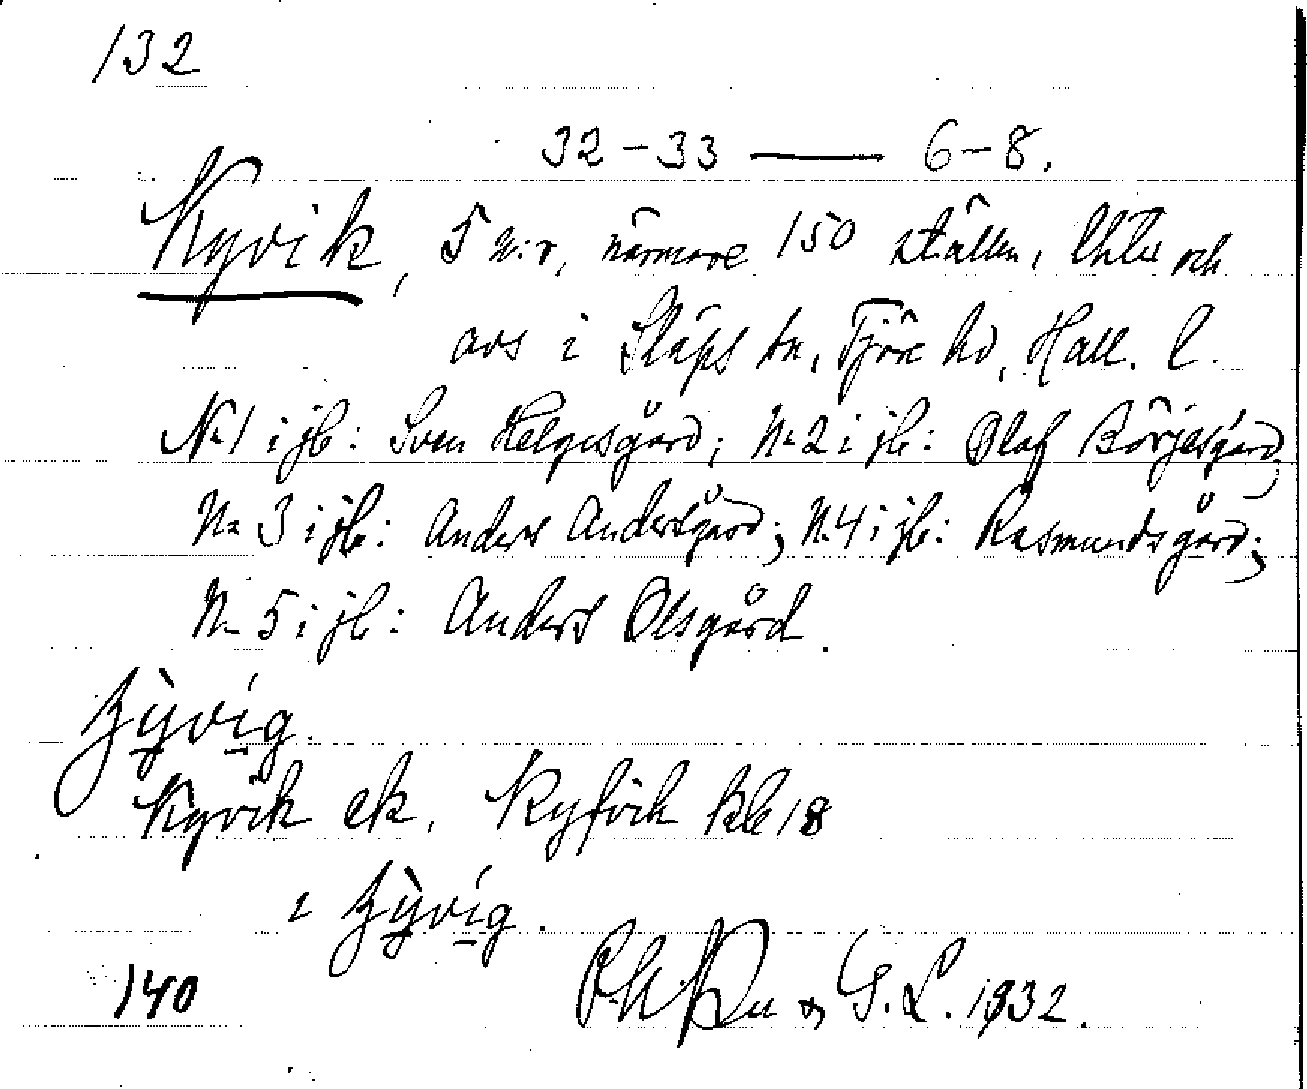 132
32–33 — 6–8.
Kyvik, 5 n:r, närmare 150 ställen, lhtr och
avs i Släps sn, Fjäre hd, Hall. l.
N:r 1 i jb: Sven Helgesgård; N:r 2 i jb: Olof Börjesgård;
N:r 3 i jb: Anders Andersgård; N:r 4 i jb: Rasmundsgård;
N:r 5 i jb: Anders Olsgård.
Kyvik ek. Kyfvik kb 18
i
140 G. L. 1932.